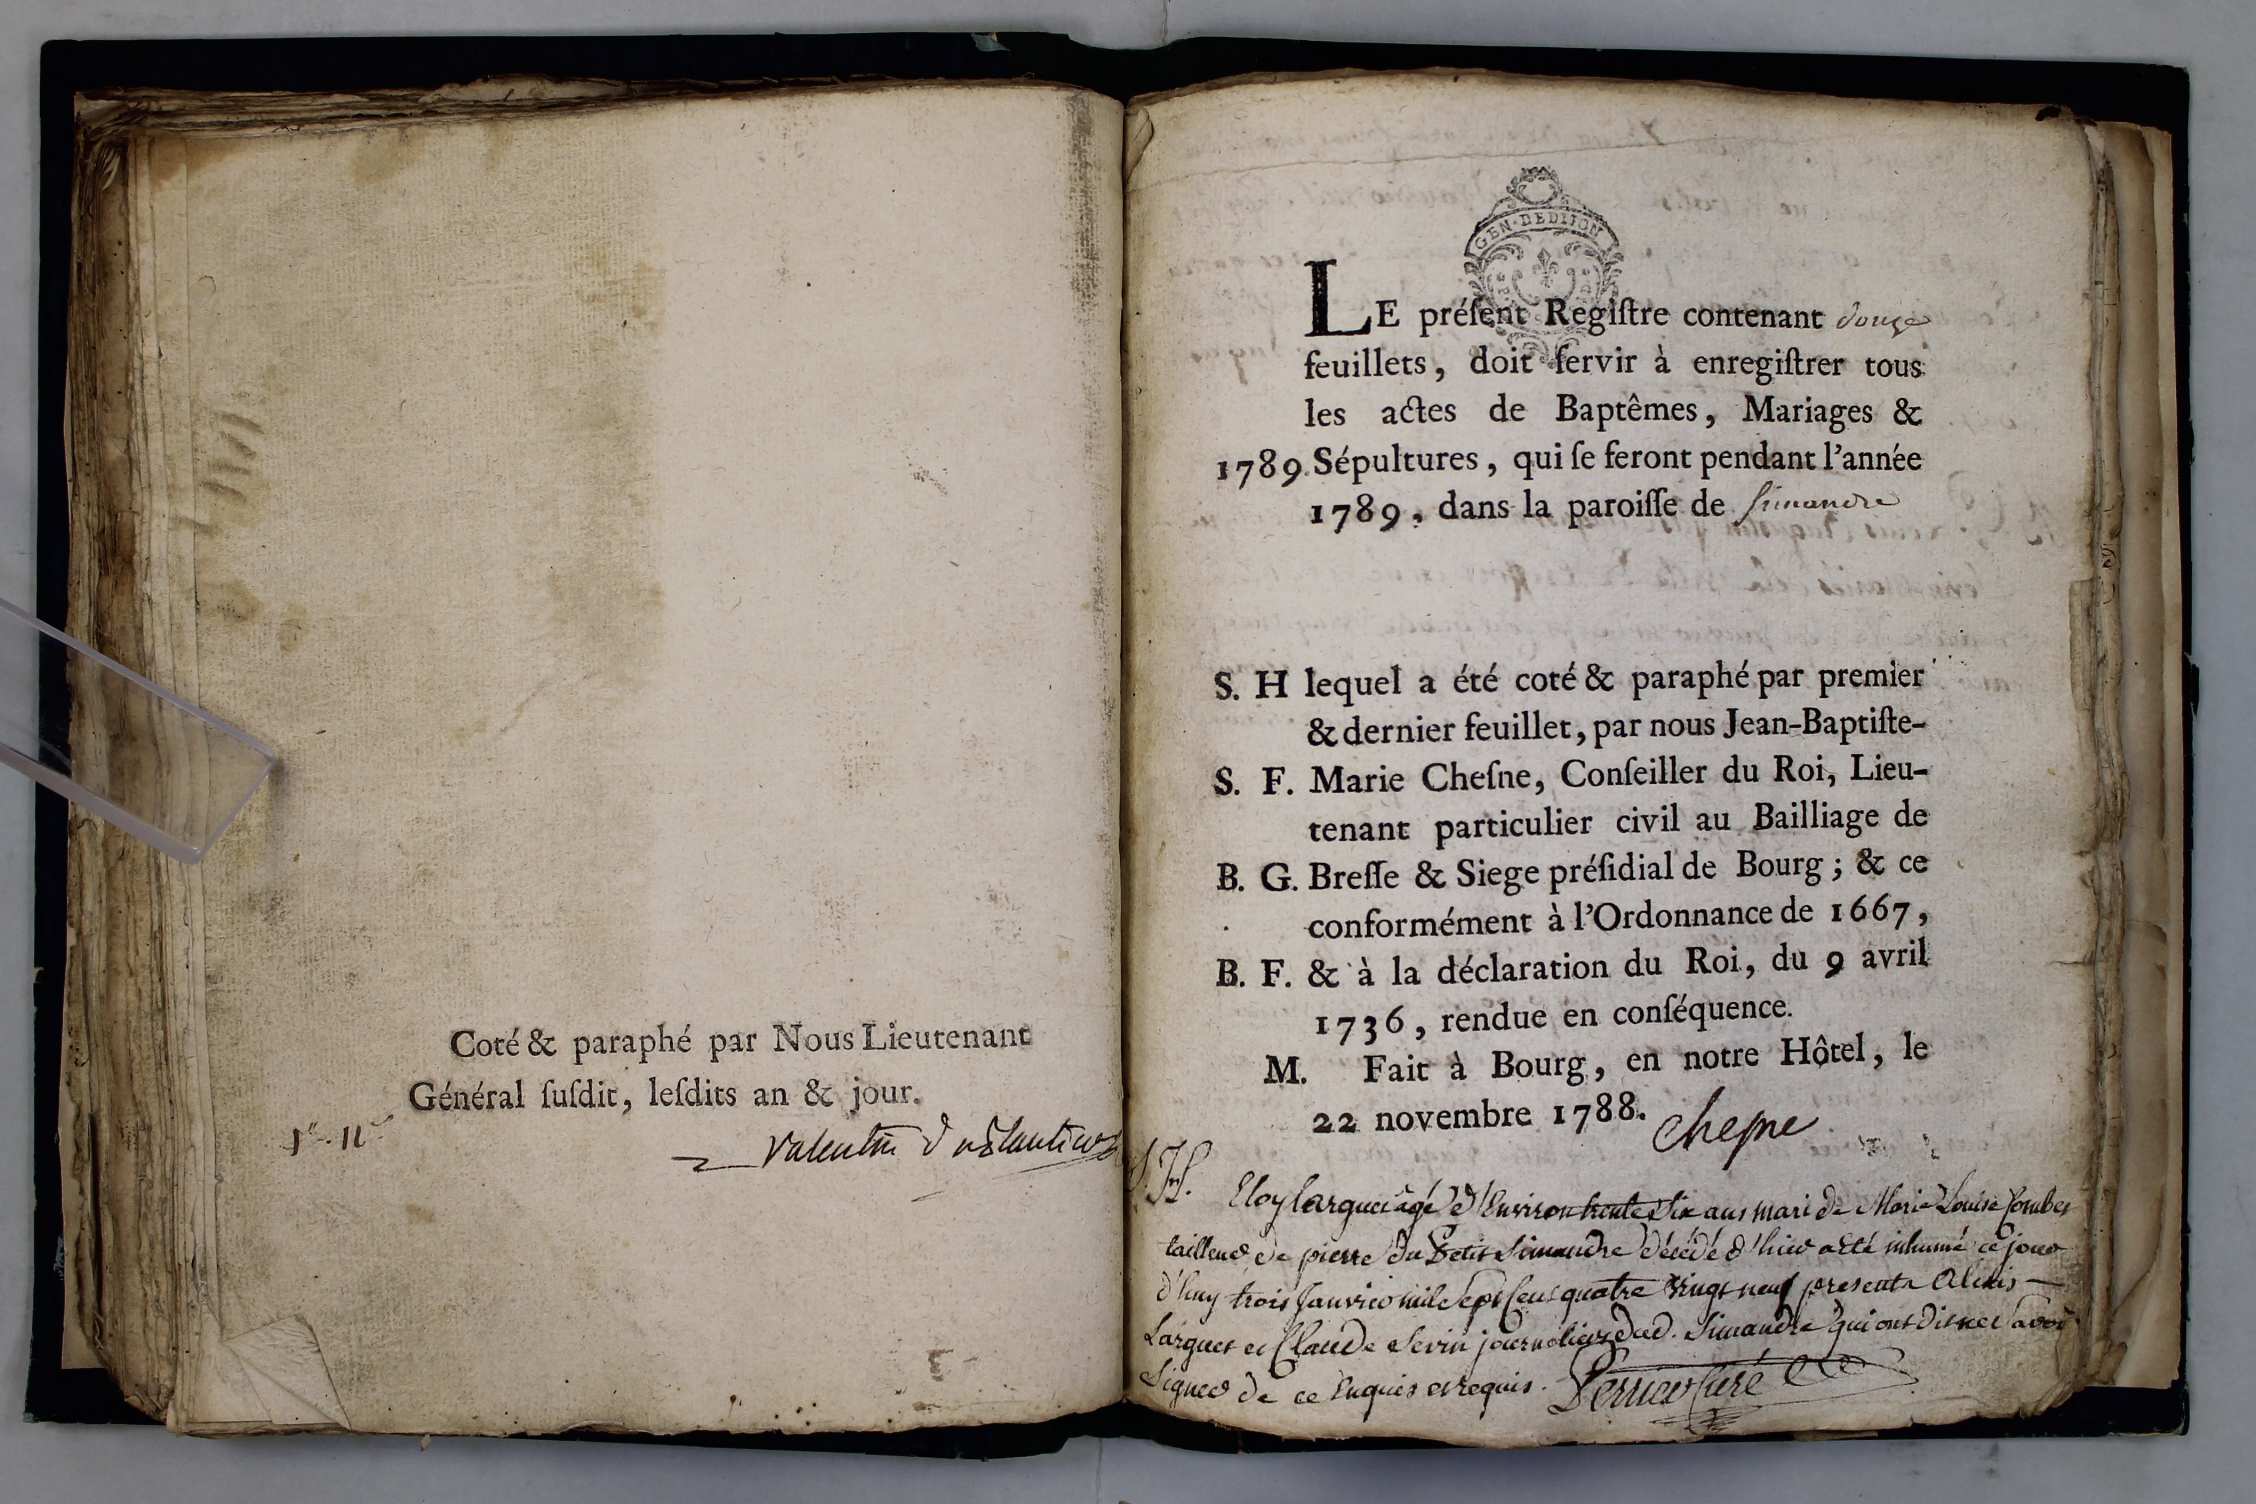 Coté & paraphé par Nous Lieutenant
Général ſuſdit, leſdits an & jour.
GEN·DEDIJON
LE préſent Regiſtre contenant douze
feuillets, doit ſervir à enregiſtrer tous
les actes de Baptêmes, Mariages &
1789. Sépultures, qui ſe feront pendant l'année
1789, dans la paroiſſe de Simandre
S. H lequel a été coté & paraphé par premier
& dernier feuillet, par nous Jean-Baptiſte-
S. F. Marie Cheſne, Conſeiller du Roi, Lieu-
tenant particulier civil au Bailliage de
B. G. Breſſe & Siege préſidial de Bourg ; & ce
conformément à l'Ordonnance de 1667,
B. F. & à la déclaration du Roi, du 9 avril
1736, rendue en conſéquence.
M. Fait à Bourg, en notre Hôtel, le
22 novembre 1788. Chesne
S.H. Eloy Larguet âgé d'Environ trente Six ans mari de Marie Louise Combet
tailleur de pierre du Petit Simandre décédé d'hier a Eté inhumé ce jour
d'huy trois Janvier mil Sept Cent quatre vingt neuf presents Alexis
Larguet et Claude Sevin journaliers dud. Simandre qui ont dit ne Savoir
Signer de ce Enquis et requis. Perrier Curé